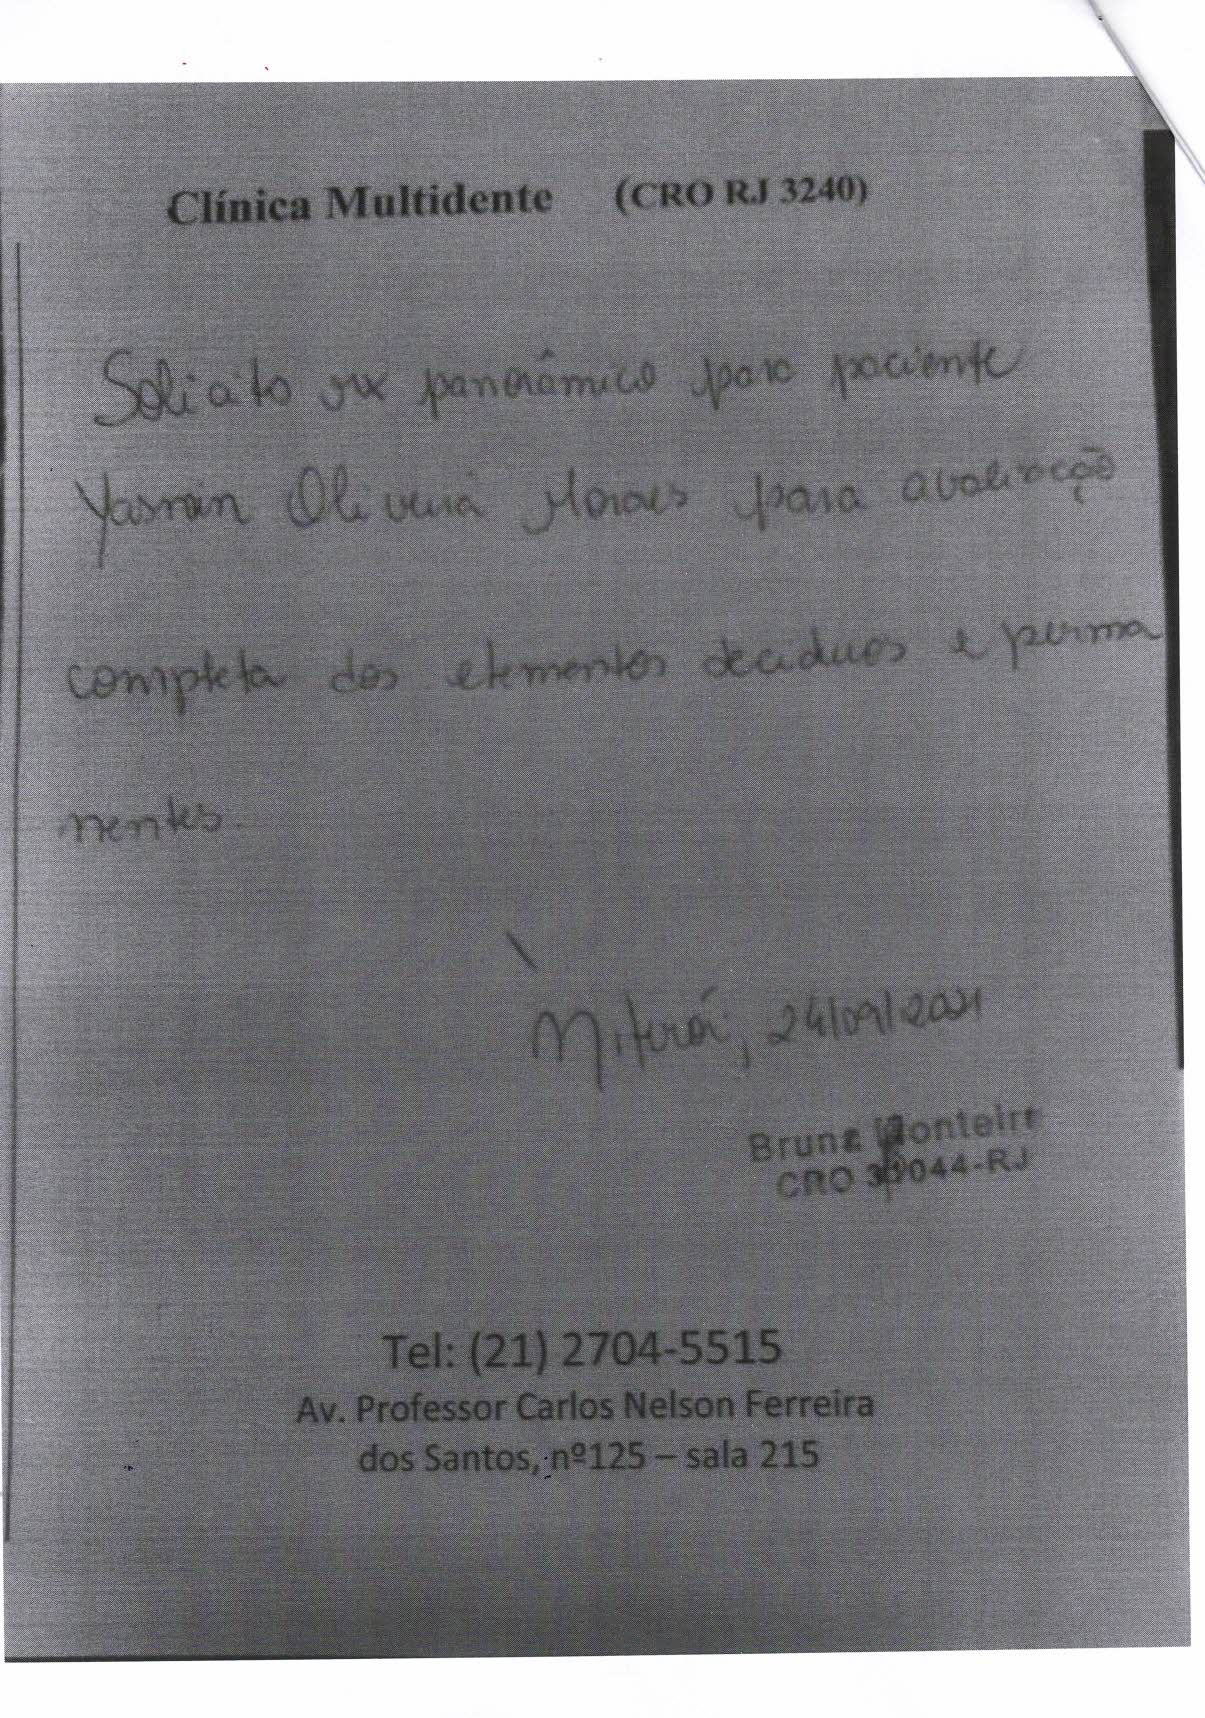 Clínica Multidente (CRO RJ 3240)
Solicito rx panorâmico para paciente
Yasmin Oliveira Moraes para avaliação
completa dos elementos deciduos e perma
nentes.
Niterói, 24/09/2021
Bruna Monteiro
CRO 044-RJ
Tel: (21) 2704-5515
Av. Professor Carlos Nelson Ferreira
dos Santos, nº125 – sala 215